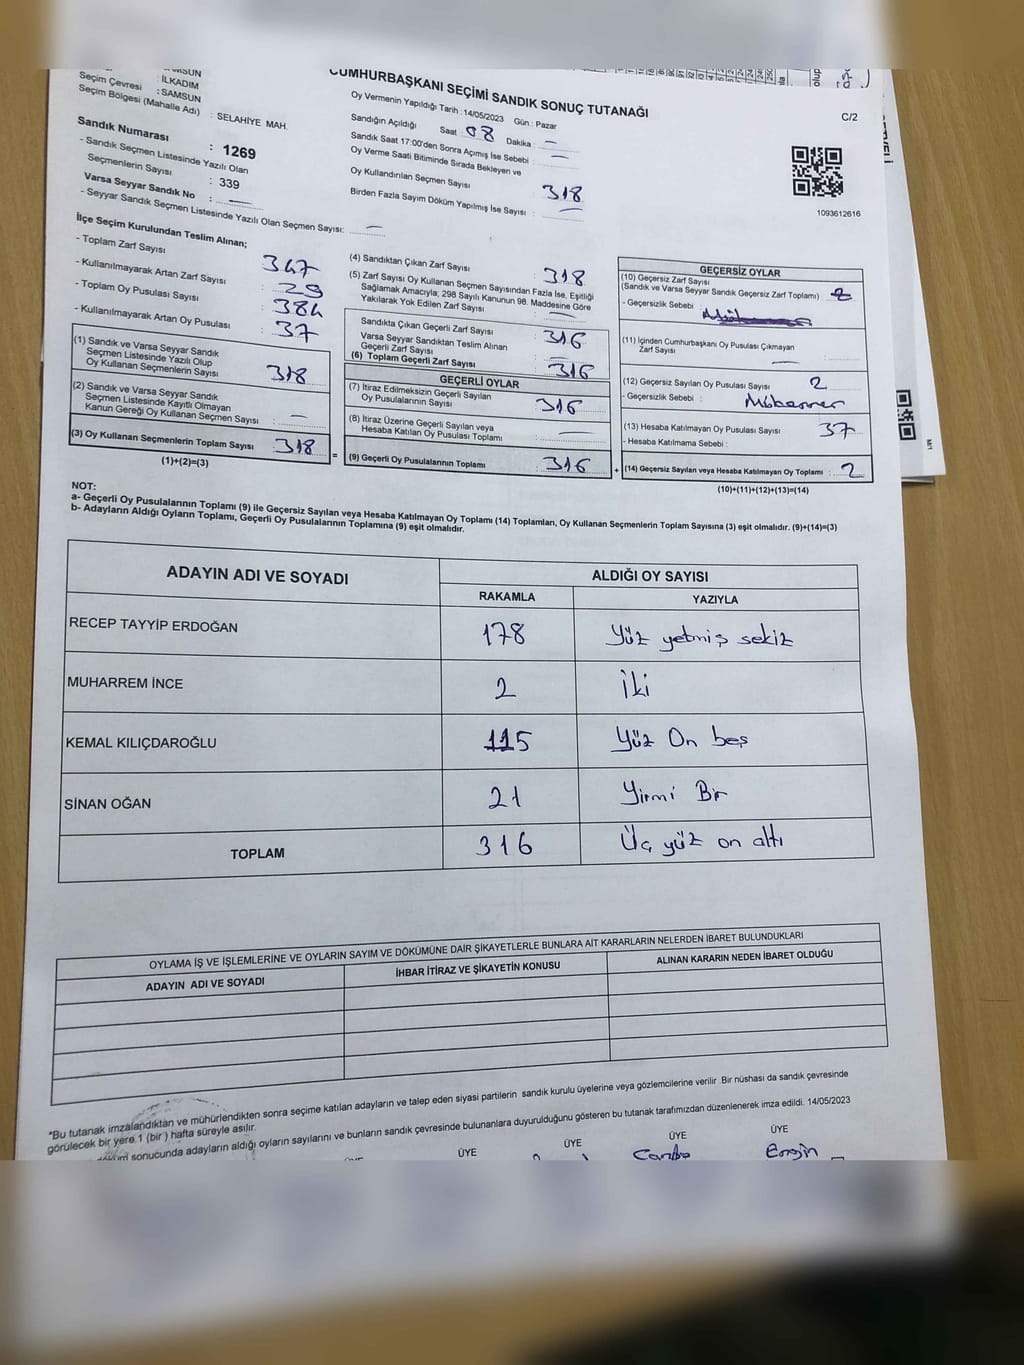 CUMHURBAŞKANI SEÇİMİ SANDIK SONUÇ TUTANAĞI
C/2
: İLKADIM
Seçim Çevresi : SAMSUN
Seçim Bölgesi (Mahalle Adı) : SELAHİYE MAH.
Sandık Numarası : 1269
- Sandık Seçmen Listesinde Yazılı Olan
Seçmenlerin Sayısı : 339
Varsa Seyyar Sandık No : —
- Seyyar Sandık Seçmen Listesinde Yazılı Olan Seçmen Sayısı: —
Oy Vermenin Yapıldığı Tarih : 14/05/2023 Gün : Pazar
Sandığın Açıldığı Saat 08 Dakika : —
Sandık Saat 17:00'den Sonra Açımış İse Sebebi : —
Oy Verme Saati Bitiminde Sırada Bekleyen ve
Oy Kullandırılan Seçmen Sayısı : 318
Birden Fazla Sayım Döküm Yapılmış İse Sayısı : —
1093612616
İlçe Seçim Kurulundan Teslim Alınan;
- Toplam Zarf Sayısı : 347
- Kullanılmayarak Artan Zarf Sayısı : 29
- Toplam Oy Pusulası Sayısı : 384
- Kullanılmayarak Artan Oy Pusulası : 37
(1) Sandık ve Varsa Seyyar Sandık
Seçmen Listesinde Yazılı Olup
Oy Kullanan Seçmenlerin Sayısı : 318
(2) Sandık ve Varsa Seyyar Sandık
Seçmen Listesinde Kayıtlı Olmayan
Kanun Gereği Oy Kullanan Seçmen Sayısı : —
(3) Oy Kullanan Seçmenlerin Toplam Sayısı : 318
(1)+(2)=(3)
(4) Sandıktan Çıkan Zarf Sayısı : 318
(5) Zarf Sayısı Oy Kullanan Seçmen Sayısından Fazla İse, Eşitliği
Sağlamak Amacıyla, 298 Sayılı Kanunun 98. Maddesine Göre
Yakılarak Yok Edilen Zarf Sayısı : —
Sandıkta Çıkan Geçerli Zarf Sayısı : 316
Varsa Seyyar Sandıktan Teslim Alınan
Geçerli Zarf Sayısı : —
(6) Toplam Geçerli Zarf Sayısı : 316
GEÇERLİ OYLAR
(7) İtiraz Edilmeksizin Geçerli Sayılan
Oy Pusulalarının Sayısı : 316
(8) İtiraz Üzerine Geçerli Sayılan veya
Hesaba Katılan Oy Pusulası Toplamı : —
=
(9) Geçerli Oy Pusulalarının Toplamı : 316
GEÇERSİZ OYLAR
(10) Geçersiz Zarf Sayısı
(Sandık ve Varsa Seyyar Sandık Geçersiz Zarf Toplamı) :
- Geçersizlik Sebebi :
(11) İçinden Cumhurbaşkanı Oy Pusulası Çıkmayan
Zarf Sayısı : —
(12) Geçersiz Sayılan Oy Pusulası Sayısı : 2
- Geçersizlik Sebebi :
(13) Hesaba Katılmayan Oy Pusulası Sayısı : 37
- Hesaba Katılmama Sebebi :
+
(14) Geçersiz Sayılan veya Hesaba Katılmayan Oy Toplamı : 2
(10)+(11)+(12)+(13)=(14)
NOT:
a- Geçerli Oy Pusulalarının Toplamı (9) ile Geçersiz Sayılan veya Hesaba Katılmayan Oy Toplamı (14) Toplamları, Oy Kullanan Seçmenlerin Toplam Sayısına (3) eşit olmalıdır. (9)+(14)=(3)
b- Adayların Aldığı Oyların Toplamı, Geçerli Oy Pusulalarının Toplamına (9) eşit olmalıdır.
ADAYIN ADI VE SOYADI
ALDIĞI OY SAYISI
RAKAMLA YAZIYLA
RECEP TAYYİP ERDOĞAN 178 Yüz yetmiş sekiz
MUHARREM İNCE 2 İki
KEMAL KILIÇDAROĞLU 115 Yüz On beş
SİNAN OĞAN 21 Yirmi Bir
TOPLAM 316 Üç yüz on altı
OYLAMA İŞ VE İŞLEMLERİNE VE OYLARIN SAYIM VE DÖKÜMÜNE DAİR ŞİKAYETLERLE BUNLARA AİT KARARLARIN NELERDEN İBARET BULUNDUKLARI
ADAYIN ADI VE SOYADI İHBAR İTİRAZ VE ŞİKAYETİN KONUSU ALINAN KARARIN NEDEN İBARET OLDUĞU
*Bu tutanak imzalandıktan ve mühürlendikten sonra seçime katılan adayların ve talep eden siyasi partilerin sandık kurulu üyelerine veya gözlemcilerine verilir .Bir nüshası da sandık çevresinde
görülecek bir yere 1 (bir ) hafta süreyle asılır.
sonucunda adayların aldığı oyların sayılarını ve bunların sandık çevresinde bulunanlara duyurulduğunu gösteren bu tutanak tarafımızdan düzenlenerek imza edildi. 14/05/2023
ÜYE ÜYE ÜYE ÜYE
Engin